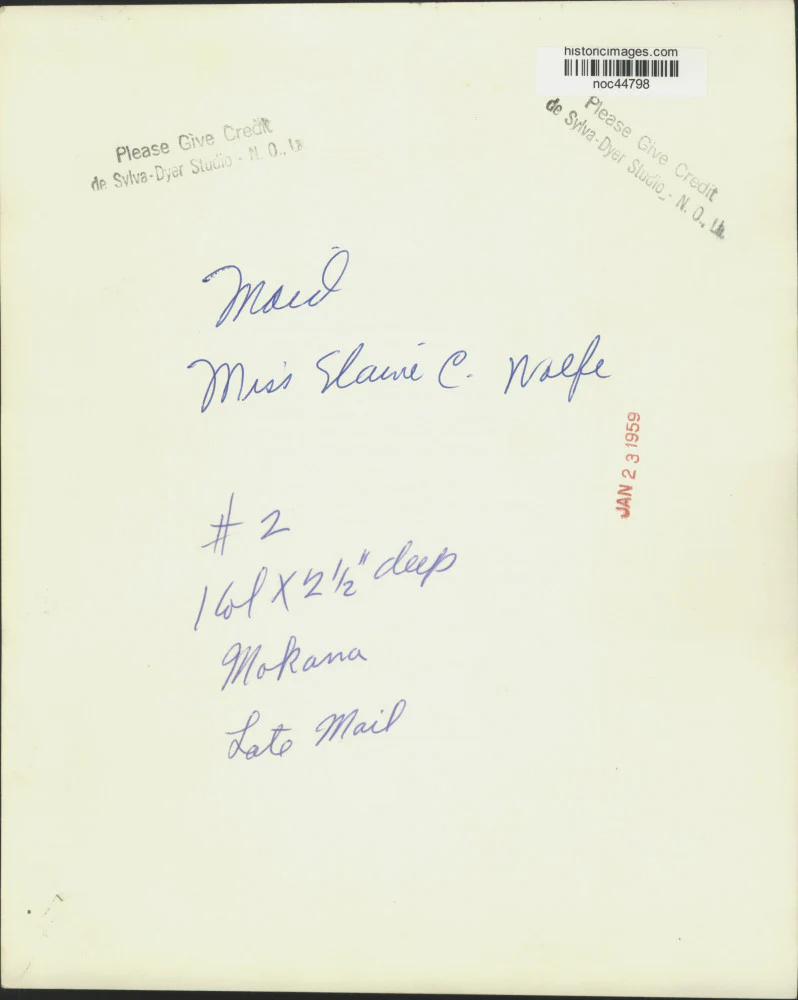 historicimages.com
noc44798
Please Give Credit
de Sylva-Dyer Studio - N. O., La.
Please Give Credit
de Sylva-Dyer Studio - N. O., La.
Maid
Miss Elaine C. Wolfe
JAN 23 1959
# 2
1 Col X 2 1/2" deep
Mokana
Late Mail